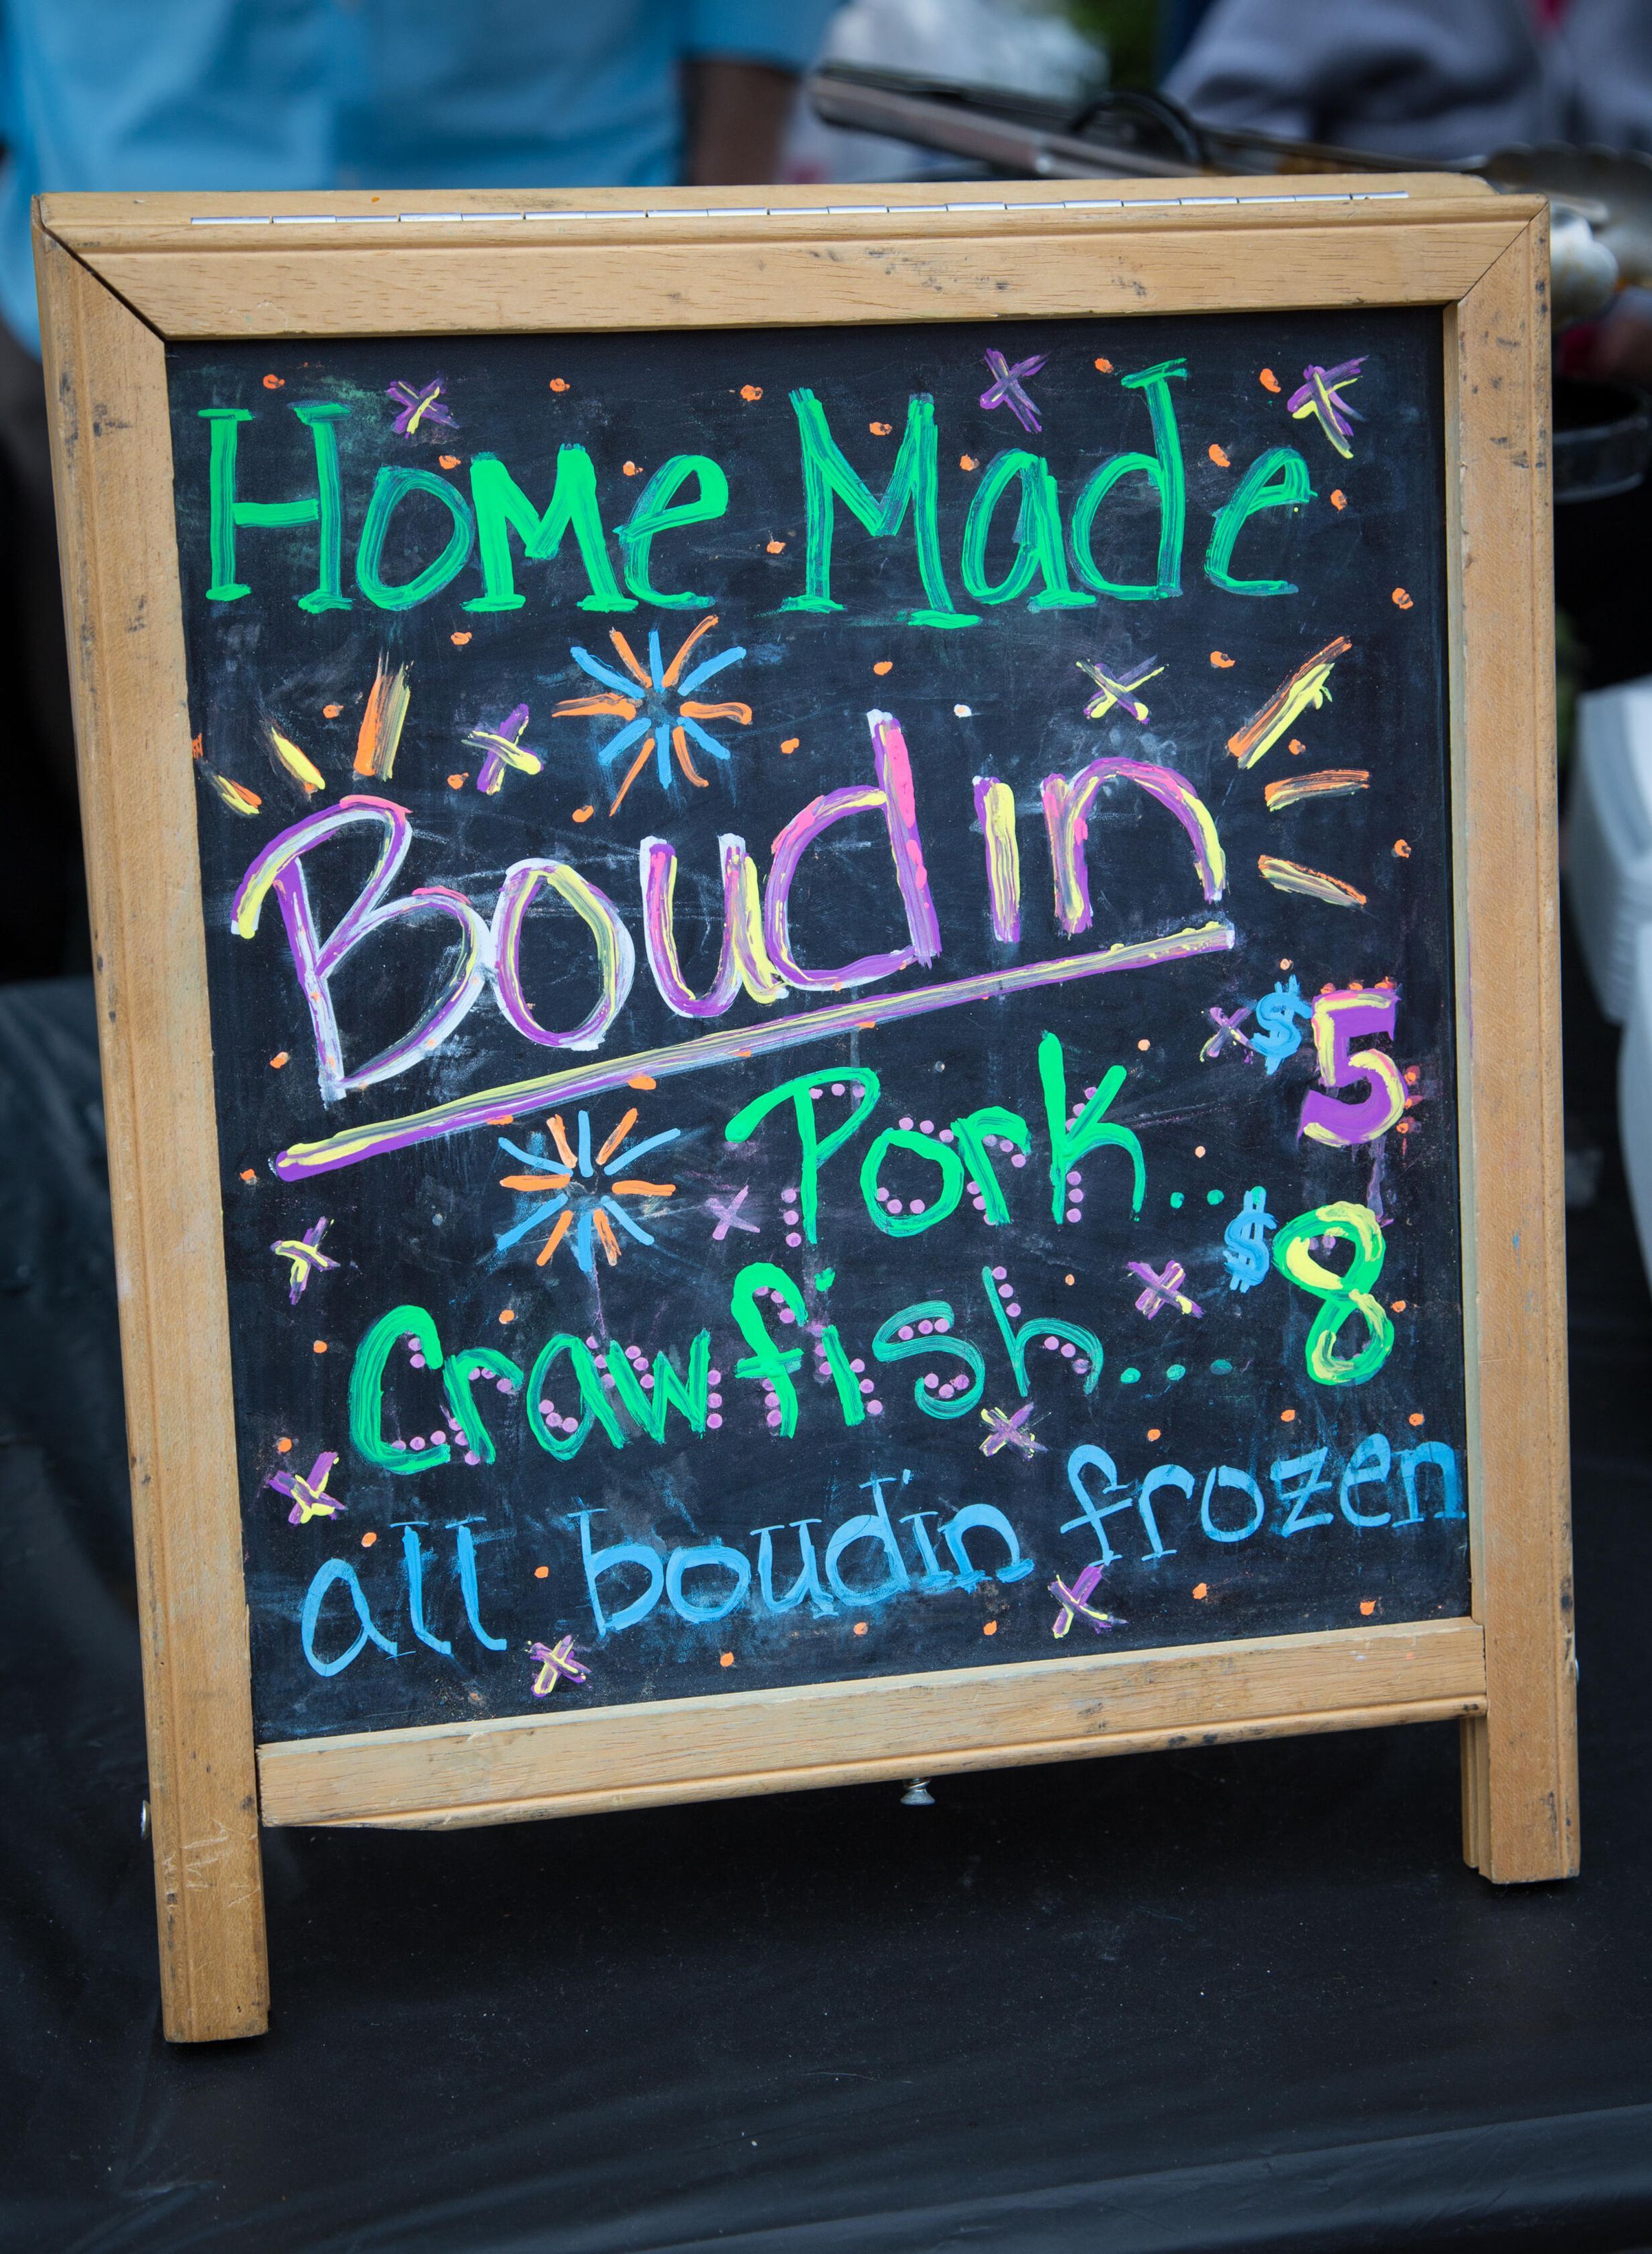 Home Made
Boudin
Pork... $5
Crawfish.... $8
all boudin frozen